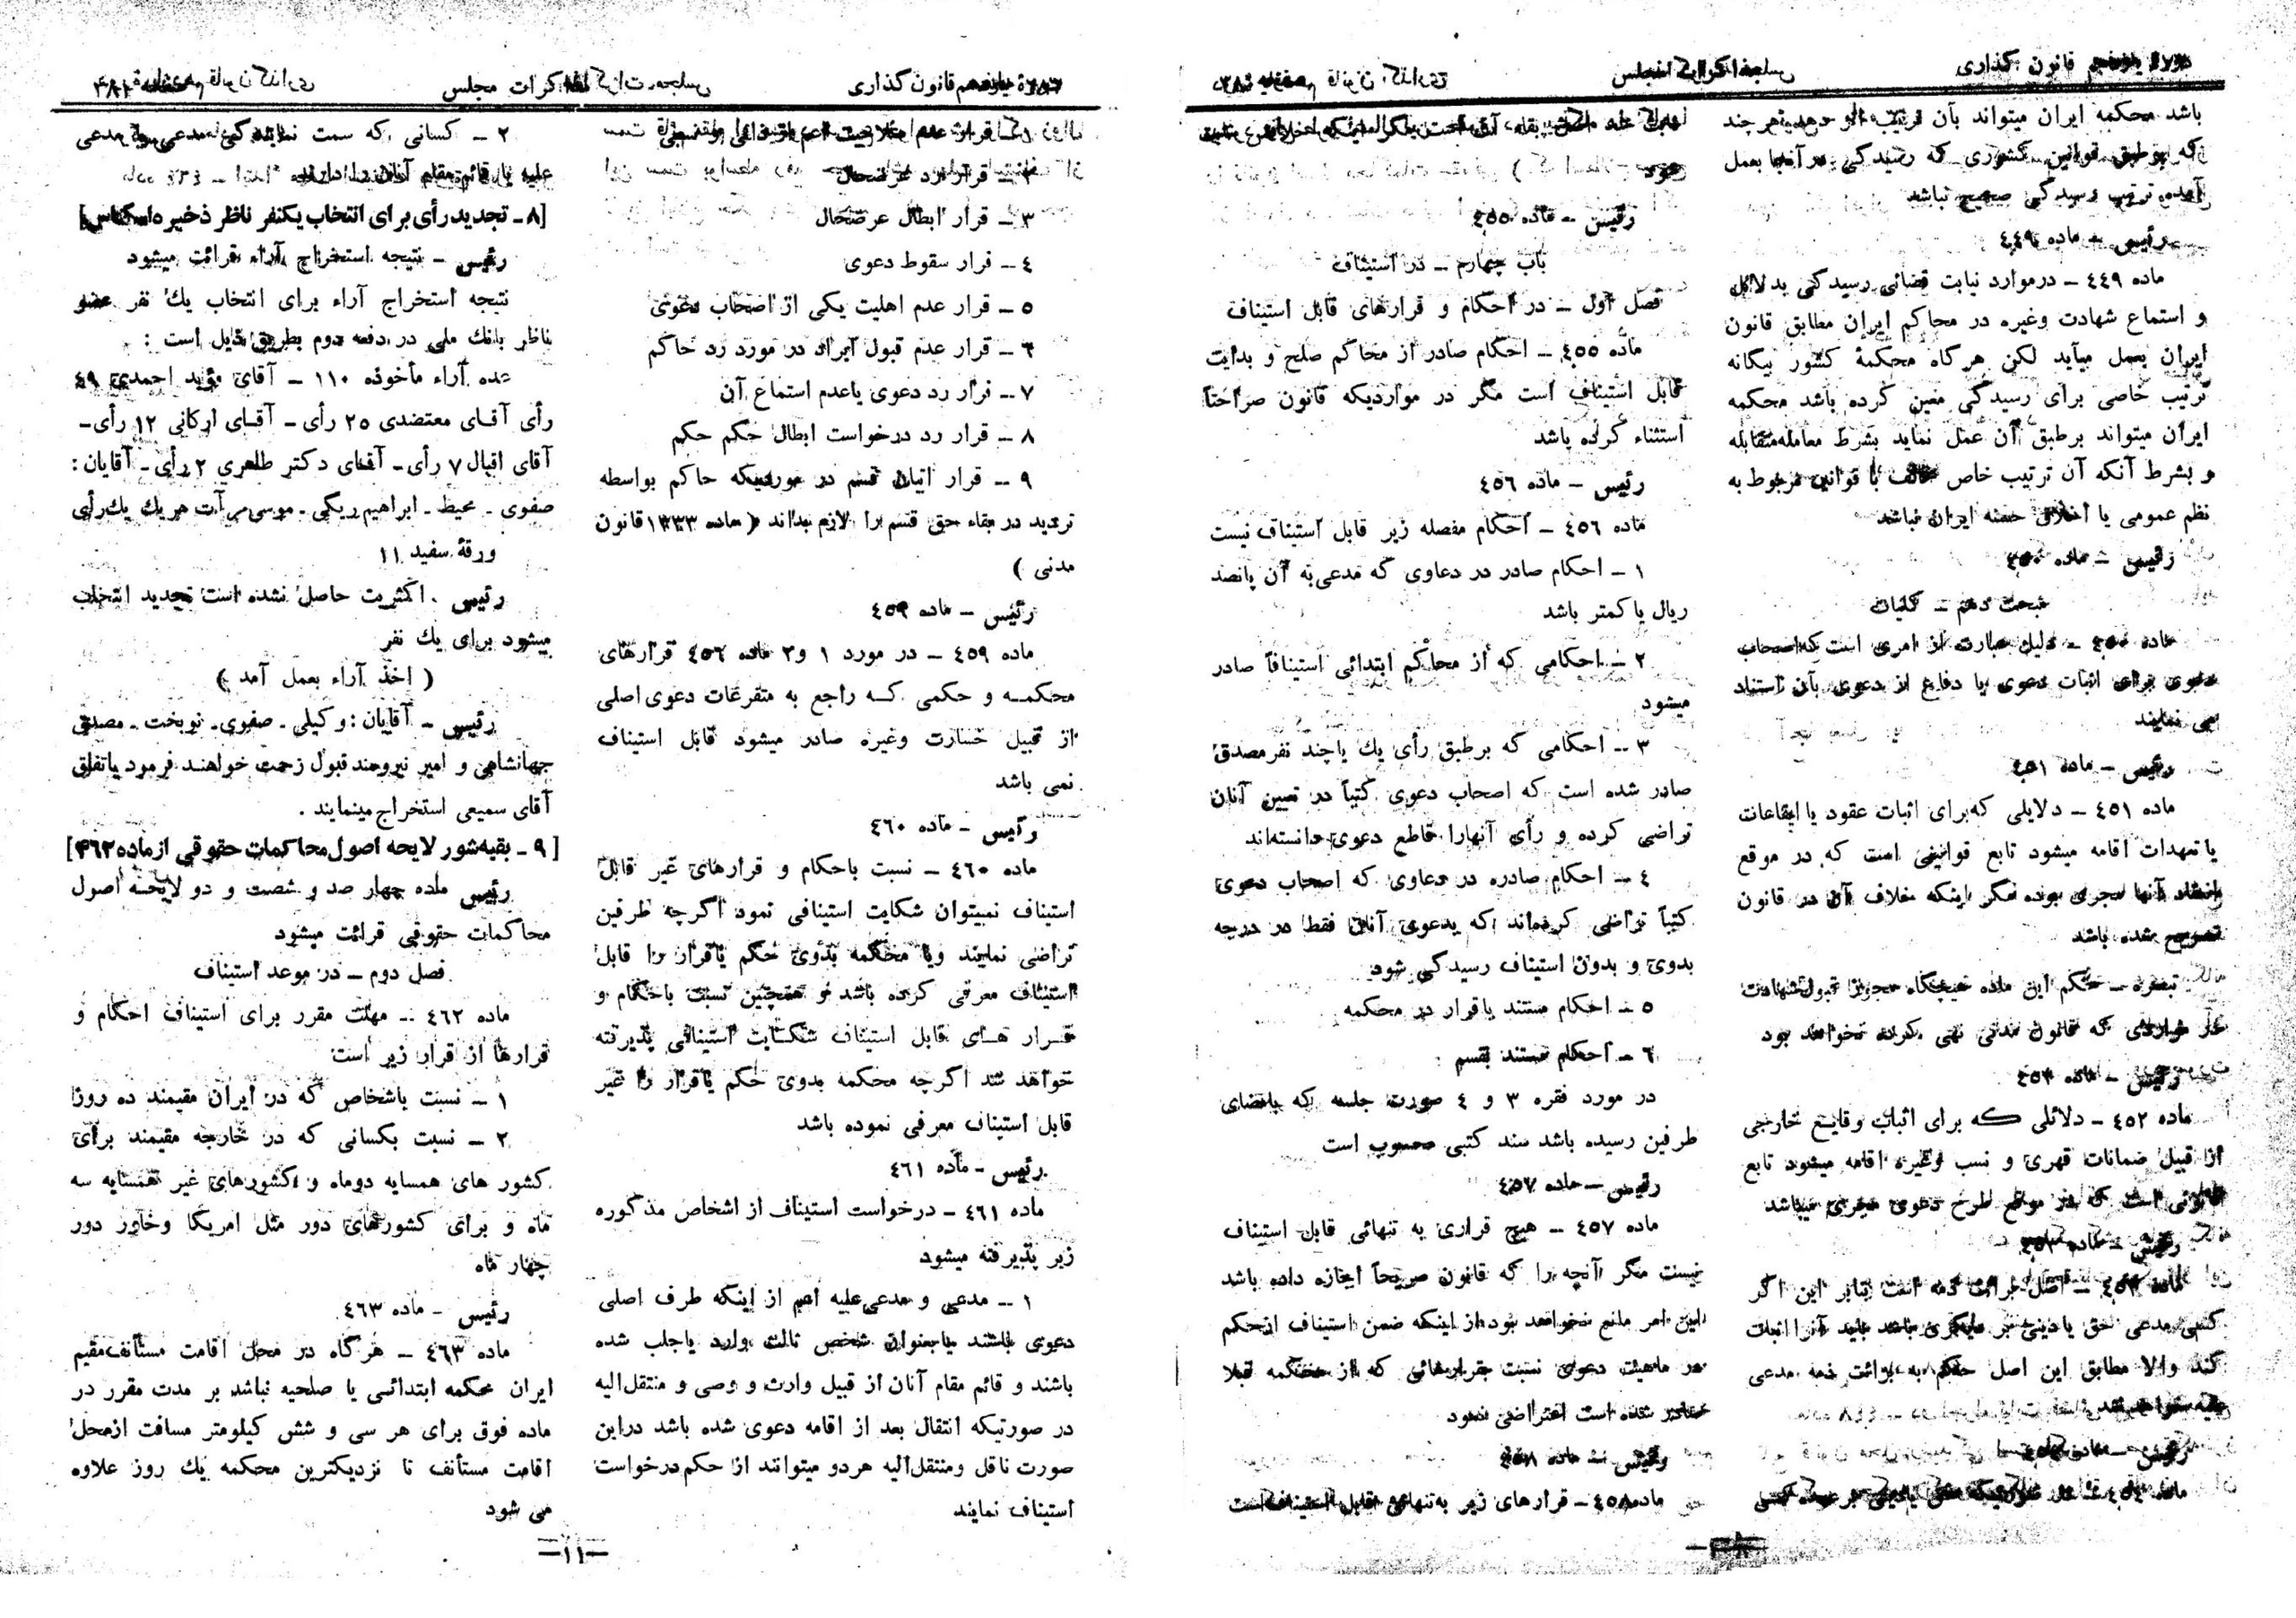 دوره یازدهم قانون گذاری
مذاکرات مجلس
باشد محکمه ایران میتواند بآن ترتیب اثر دهد هرچند
که برطبق قوانین کشوری که رسیدگی در آنجا بعمل
آمده ترتیب رسیدگی صحیح نباشد
رئیس – ماده ٤٤٩
ماده ٤٤٩ – درموارد نیابت قضائی رسیدگی بدلائل
و استماع شهادت وغیره در محاکم ایران مطابق قانون
ایران بعمل میآید لکن هرگاه محکمهٔ کشور بیگانه
ترتیب خاصی برای رسیدگی معین کرده باشد محکمه
ایران میتواند برطبق آن عمل نماید بشرط معامله متقابله
و بشرط آنکه آن ترتیب خاص مخالف با قوانین مربوط به
نظم عمومی یا اخلاق حسنه ایران نباشد
رئیس – ماده ٤٥٠
مبحث دهم – کلیات
ماده ٤٥٠ – دلیل عبارت از امری است که اصحاب
دعوی برای اثبات دعوی یا دفاع از دعوی بآن استناد
می نمایند
رئیس – ماده ٤٥١
ماده ٤٥١ – دلایلی که برای اثبات عقود یا ایقاعات
یا تعهدات اقامه میشود تابع قوانینی است که در موقع
انعقاد آنها مجری بوده مگر اینکه خلاف آن در قانون
تصریح شده باشد
تبصره – حکم این ماده هیچگاه مجوز قبول شهادت
در مواردی که قانون مدنی نهی کرده نخواهد بود
رئیس – ماده ٤٥٢
ماده ٤٥٢ – دلائلی که برای اثبات وقایع خارجی
از قبیل ضمانات قهری و نسب وغیره اقامه میشود تابع
قانونی است که در موقع طرح دعوی مجری میباشد
رئیس – ماده ٤٥٣
ماده ٤٥٣ – اصل برائت ذمه است بنابر این اگر
کسی مدعی حق یا دینی بر دیگری باشد باید آنرا اثبات
کند والا مطابق این اصل حکم به برائت ذمه مدعی
علیه خواهد شد
رئیس – ماده ٤٥٤
ماده ٤٥٤ –
رئیس – ماده ٤٥٥
باب چهارم – در استیناف
فصل اول – در احکام و قرارهای قابل استیناف
ماده ٤٥٥ – احکام صادر از محاکم صلح و بدایت
قابل استیناف است مگر در مواردیکه قانون صراحتاً
استثناء کرده باشد
رئیس – ماده ٤٥٦
ماده ٤٥٦ – احکام مفصله زیر قابل استیناف نیست
١ – احکام صادر در دعاوی که مدعی به آن پانصد
ریال یا کمتر باشد
٢ – احکامی که از محاکم ابتدائی استینافاً صادر
میشود
٣ – احکامی که برطبق رأی یك یا چند نفر مصدق
صادر شده است که اصحاب دعوی کتباً در تعیین آنان
تراضی کرده و رأی آنهارا قاطع دعوی دانسته‌اند
٤ – احکام صادره در دعاوی که اصحاب دعوی
کتباً تراضی کرده‌اند که بدعوی آنان فقط در درجه
بدوی و بدون استیناف رسیدگی شود
٥ – احکام مستند باقرار در محکمه
٦ – احکام مستند بقسم
در مورد فقره ٣ و ٤ صورت جلسه که بامضای
طرفین رسیده باشد سند کتبی محسوب است
رئیس – ماده ٤٥٧
ماده ٤٥٧ – هیچ قراری به تنهائی قابل استیناف
نیست مگر آنچه را که قانون صریحاً اجازه داده باشد
این امر مانع نخواهد بود از اینکه ضمن استیناف از حکم
در ماهیت دعوی نسبت بقرارهائی که از محکمه قبلا
صادر شده است اعتراضی شود
رئیس – ماده ٤٥٨
ماده ٤٥٨ – قرارهای زیر به تنهائی قابل استیناف است
دوره یازدهم قانون گذاری
مذاکرات مجلس
١ – قرار عدم صلاحیت اعم از ذاتی و نسبی
٢ – قرار رد عرضحال
٣ – قرار ابطال عرضحال
٤ – قرار سقوط دعوی
٥ – قرار عدم اهلیت یکی از اصحاب دعوی
٦ – قرار عدم قبول ایراد در مورد رد حاکم
٧ – قرار رد دعوی یا عدم استماع آن
٨ – قرار رد درخواست ابطال حکم حکم
٩ – قرار اتیان قسم در موردیکه حاکم بواسطه
تردید در بقاء حق قسم را لازم بداند ( ماده ١٣٣٣ قانون
مدنی )
رئیس – ماده ٤٥٩
ماده ٤٥٩ – در مورد ١ و٢ ماده ٤٥٦ قرارهای
محکمه و حکمی که راجع به متفرعات دعوی اصلی
از قبیل خسارت وغیره صادر میشود قابل استیناف
نمی باشد
رئیس – ماده ٤٦٠
ماده ٤٦٠ – نسبت باحکام و قرارهای غیر قابل
استیناف نمیتوان شکایت استینافی نمود اگرچه طرفین
تراضی نمایند ویا محکمه بدوی حکم یاقرار را قابل
استیناف معرفی کرده باشد و همچنین نسبت باحکام و
قرار های قابل استیناف شکایت استینافی پذیرفته
خواهد شد اگرچه محکمه بدوی حکم یاقرار را غیر
قابل استیناف معرفی نموده باشد
رئیس – ماده ٤٦١
ماده ٤٦١ – درخواست استیناف از اشخاص مذکوره
زیر پذیرفته میشود
١ – مدعی و مدعی علیه اعم از اینکه طرف اصلی
دعوی باشند یا بعنوان شخص ثالث وارد یا جلب شده
باشند و قائم مقام آنان از قبیل وارث و وصی و منتقل الیه
در صورتیکه انتقال بعد از اقامه دعوی شده باشد دراین
صورت ناقل ومنتقل الیه هردو میتوانند از حکم درخواست
استیناف نمایند
٢ – کسانی که سمت نمایندگی مدعی و یا مدعی
علیه یا قائم مقام آنان را دارند
[٨ – تجدید رأی برای انتخاب یکنفر ناظر ذخیره اسکناس]
رئیس – نتیجه استخراج آراء قرائت میشود
نتیجه استخراج آراء برای انتخاب یك نفر عضو
ناظر بانك ملی در دفعه دوم بطریق ذیل است :
عده آراء مأخوذه ١١٠ – آقای مؤید احمدی ٤٩
رأی آقای معتضدی ٢٥ رأی – آقای ارکانی ١٢ رأی –
آقای اقبال ٧ رأی – آقای دکتر طاهری ٢ رأی – آقایان :
صفوی – محیط – ابراهیم ریگی – موسی مرآت هریك یك رأی
ورقهٔ سفید ١١
رئیس . اکثریت حاصل نشده است تجدید انتخاب
میشود برای یك نفر
( اخذ آراء بعمل آمد )
رئیس – آقایان : وکیلی – صفوی – نوبخت – مصدق
جهانشاهی و امیر نیرومند قبول زحمت خواهند فرمود باتفاق
آقای سمیعی استخراج مینمایند .
[٩ – بقیه شور لایحه اصول محاکمات حقوقی از ماده ٤٦٢]
رئیس ماده چهار صد و شصت و دو لایحه اصول
محاکمات حقوقی قرائت میشود
فصل دوم – در موعد استیناف
ماده ٤٦٢ – مهلت مقرر برای استیناف احکام و
قرارها از قرار زیر است
١ – نسبت باشخاص که در ایران مقیمند ده روز
٢ – نسبت بکسانی که در خارجه مقیمند برای
کشور های همسایه دوماه و کشورهای غیر همسایه سه
ماه و برای کشورهای دور مثل امریکا وخاور دور
چهار ماه
رئیس – ماده ٤٦٣
ماده ٤٦٣ – هرگاه در محل اقامت مستأنف مقیم
ایران محکمه ابتدائی یا صلحیه نباشد بر مدت مقرر در
ماده فوق برای هر سی و شش کیلومتر مسافت از محل
اقامت مستأنف تا نزدیکترین محکمه یك روز علاوه
می شود
–١١–